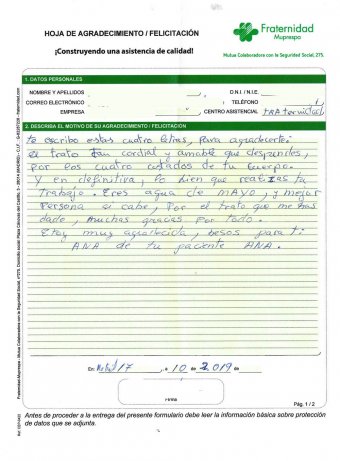 HOJA DE AGRADECIMIENTO / FELICITACIÓN
¡Construyendo una asistencia de calidad!
Fraternidad
Muprespa
Mutua Colaboradora con la Seguridad Social, 275.
1. DATOS PERSONALES
NOMBRE Y APELLIDOS
D.N.I. / N.I.E.
CORREO ELECTRÓNICO
TELÉFONO
EMPRESA
CENTRO ASISTENCIAL FRAternidad
2. DESCRIBA EL MOTIVO DE SU AGRADECIMIENTO / FELICITACIÓN
te escribo estas cuatro letras, para agradecerte.
el trato tan cordial y amable que desprendes,
Por los cuatro costados de tu cuerpo.
Y en definitiva, lo bien que realizas tu
Trabajo. Eres agua de MAYO, y mejor
Persona si cabe, Por el trato que me has
dado, Muchas gracias Por todo.
Estoy muy agradecida, besos para ti
ANA de tu paciente ANA.
En: 17 , 10 de 2.019
Firma
Pág. 1 / 2
Antes de proceder a la entrega del presente formulario debe leer la información básica sobre protección
de datos que se adjunta.